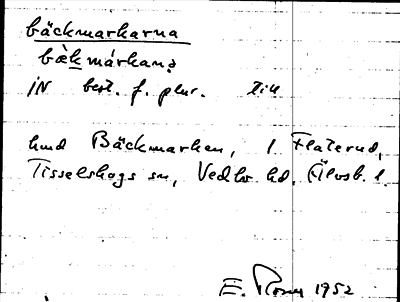 bäckmarkarna
bäk márkana
iN best. f. plur. till
hmd Bäckmarken, 1 Flaterud,
Tisselskogs sn, Vedbo hd. Älvsb. l.
E. 1952